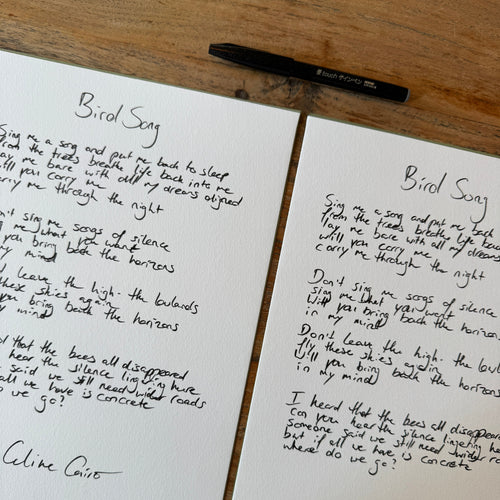 touch サインペン
Bird Song
Sing me a song and put me back to sleep
from the trees breathe life back into me
lay me bare with all my dreams aligned
will you carry me
carry me through the night
n't sing me songs of silence
me what you want
you bring back the horizons
my mind
leave the high- the lowlands
these skies again
you bring back the horizons
my mind
that the bees all disappeared
hear the silence lingering here
said we still need wider roads
all we have is concrete
do we go?
Celine Cairo
Bird Song
Sing me a song and put me back
from the trees breathe life back
lay me bare with all my dreams
will you carry me
carry me through the night
Don't sing me songs of silence
sing me what you want
Will you bring back the horizons
in my mind
Don't leave the high- the lowlands
fly these skies again
Will you bring back the horizons
in my mind
I heard that the bees all disappeared
can you hear the silence lingering
someone said we still need wider
but if all we have is concrete
where do we go?